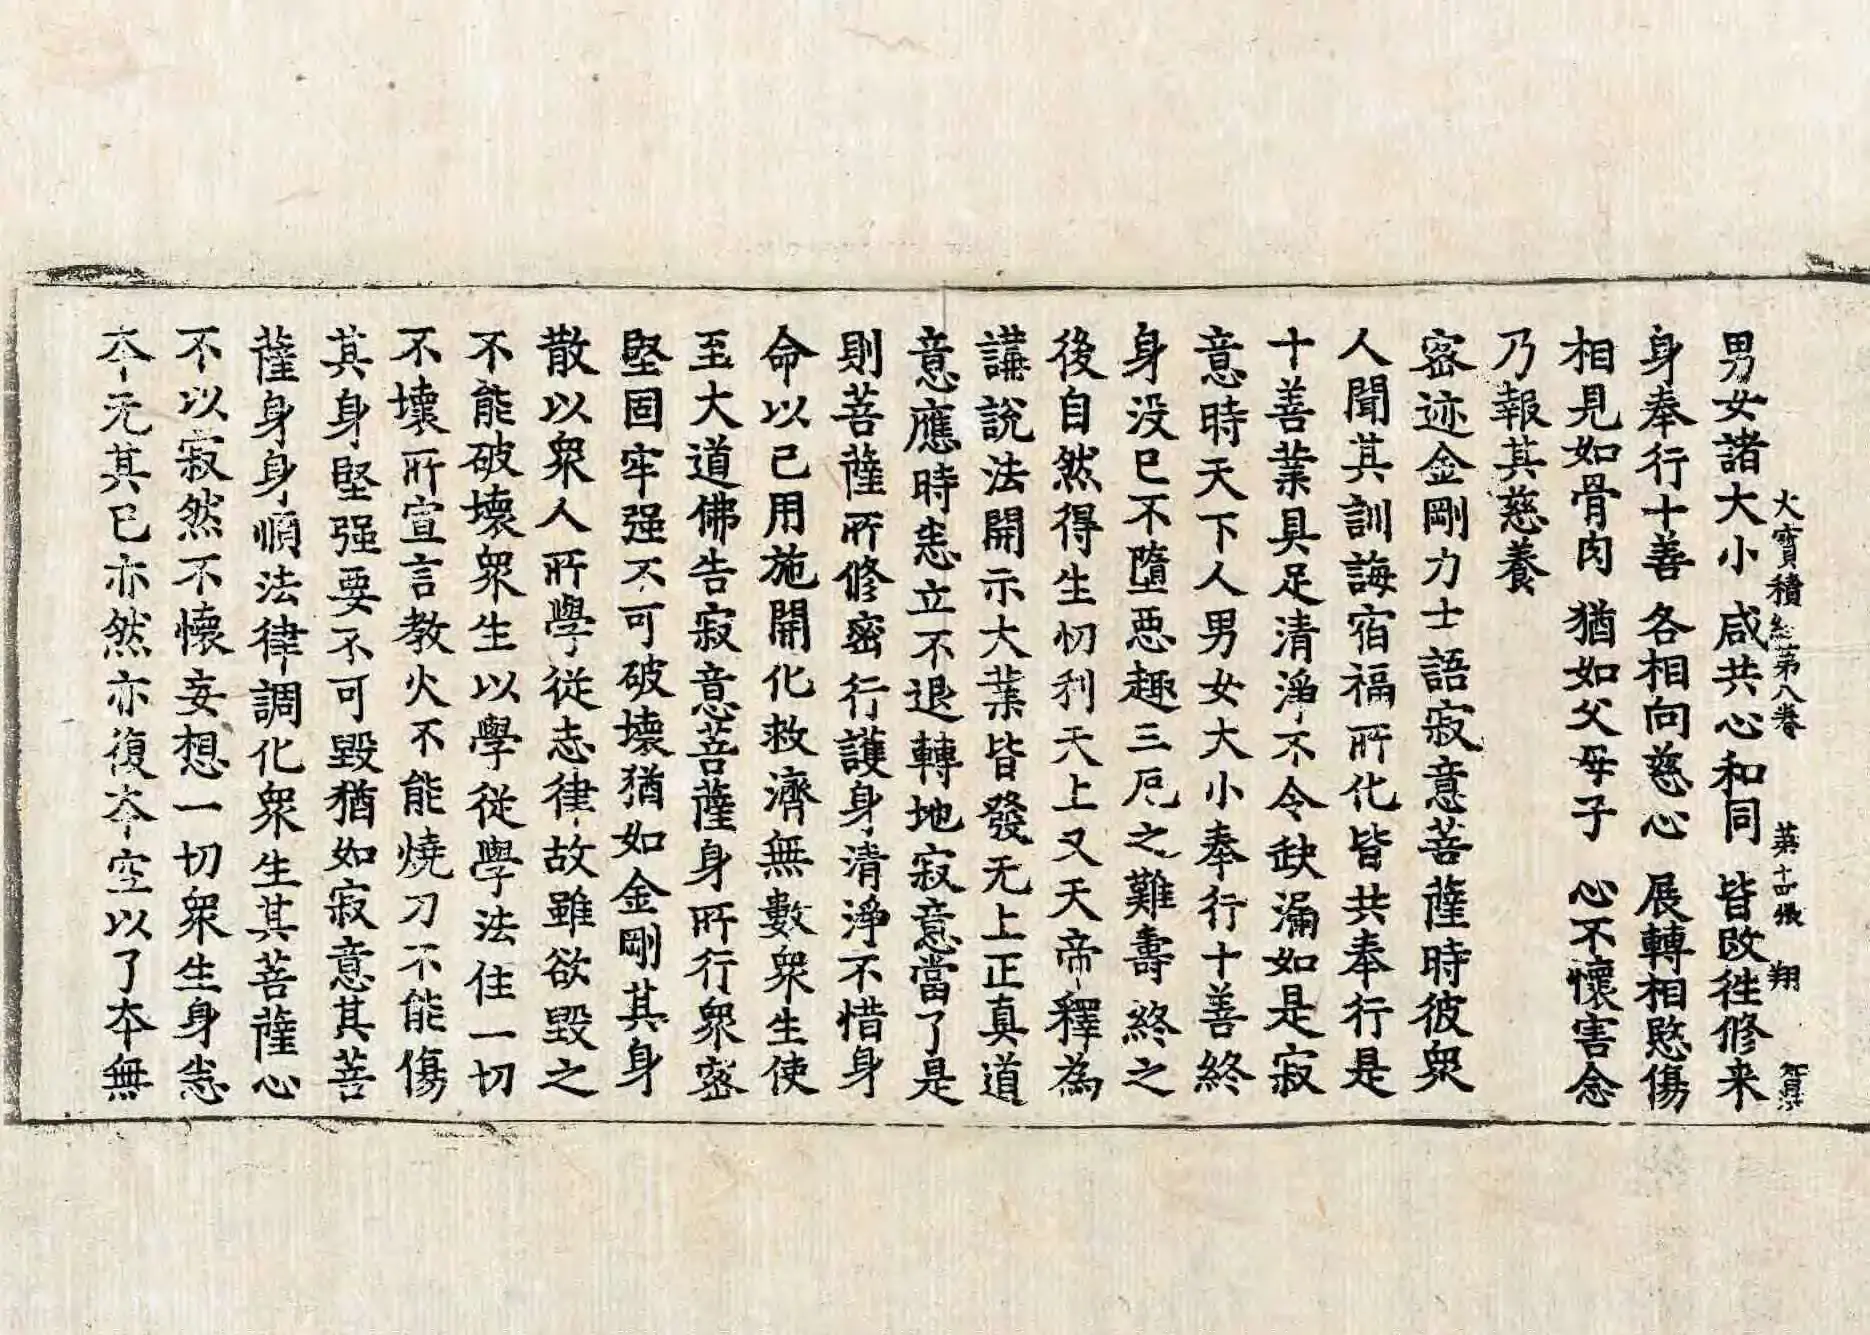 大寶積經第八卷 第十四張 翔
男女諸大小 咸共心和同 皆改往修来
身奉行十善 各相向慈心 展轉相愍傷
相見如骨肉 猶如父母子 心不懷害念
乃報其慈養
密迹金剛力士語寂意菩薩時彼衆
人聞其訓誨宿福所化皆共奉行是
十善業具足清淨不令缺漏如是寂
意時天下人男女大小奉行十善終
身没已不墮惡趣三厄之難壽終之
後自然得生忉利天上又天帝釋為
講說法開示大業皆發无上正真道
意應時悉立不退轉地寂意當了是
則菩薩所修密行護身清淨不惜身
命以己用施開化救濟無數衆生使
至大道佛告寂意菩薩身所行衆密
堅固牢强不可破壞猶如金剛其身
散以衆人所學從志律故雖欲毀之
不能破壞衆生以學從學法住一切
不壞所宣言教火不能燒刀不能傷
其身堅强要不可毀猶如寂意其菩
薩身身順法律調化衆生其菩薩心
不以寂然不懷妄想一切衆生身悉
夲无其已亦然亦復夲空以了夲無